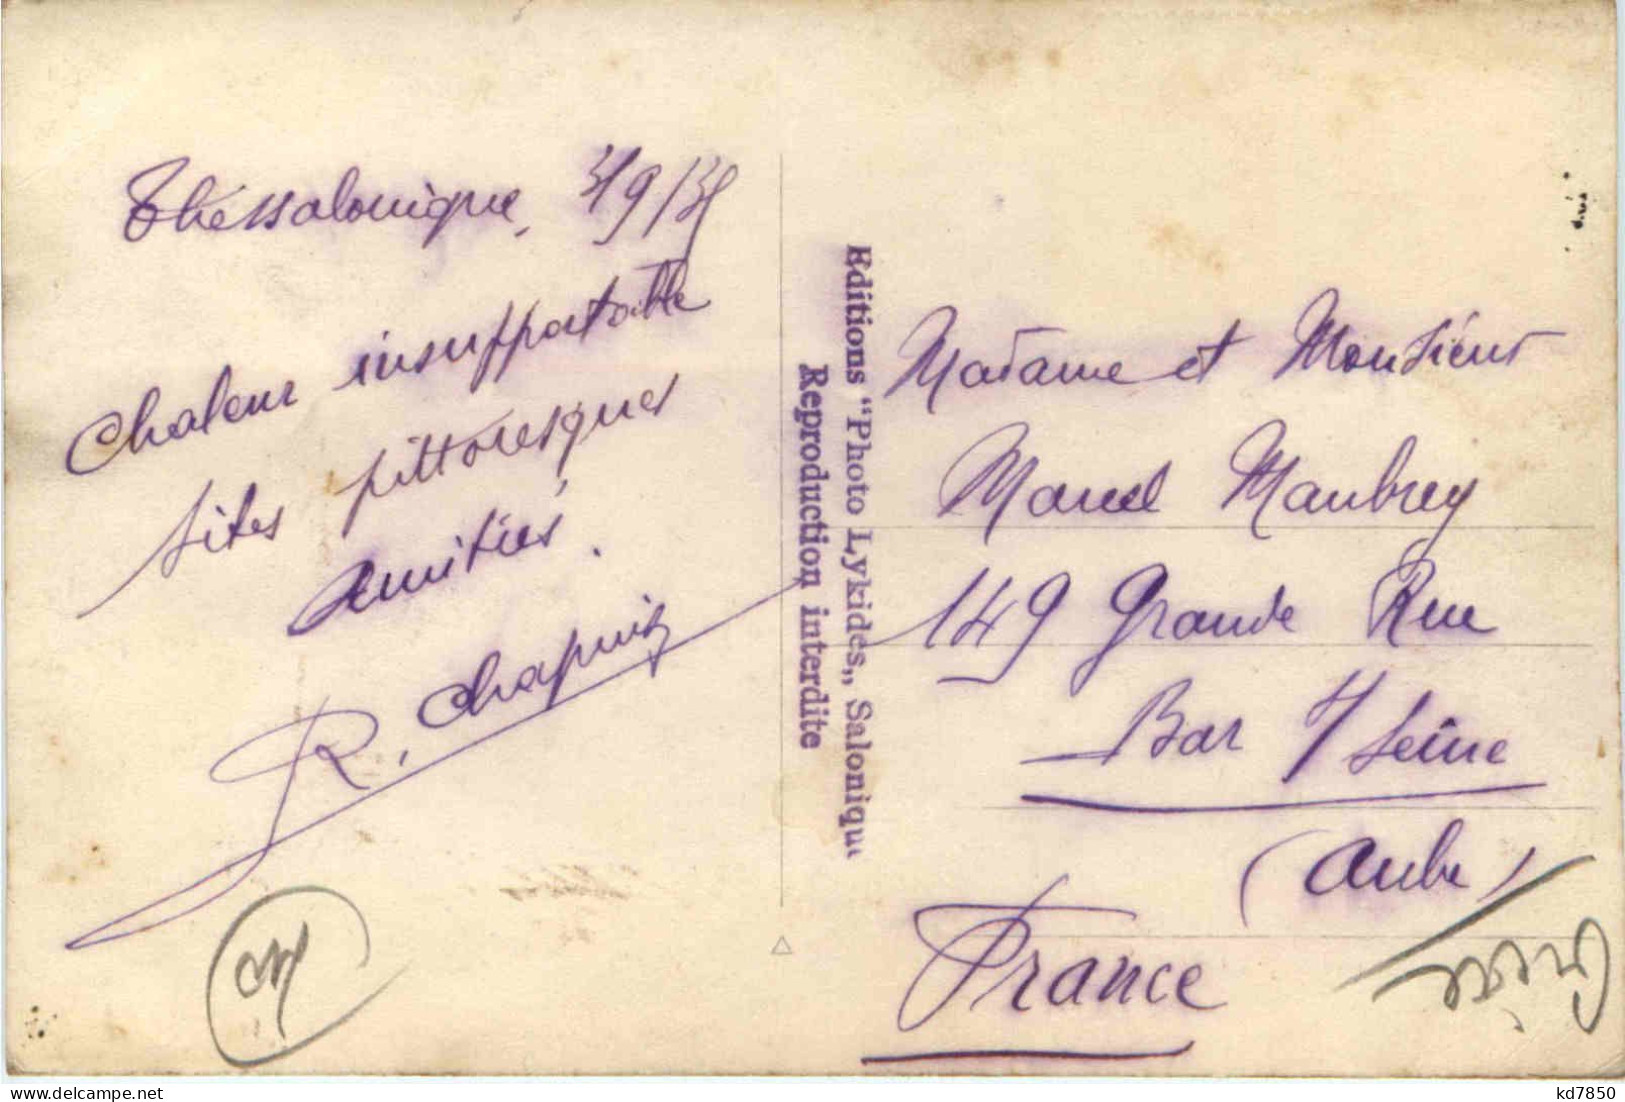 Thessalonique, 3/9/35
Chaleur insupportable
sites pittoresques
Amitiés.
R. Chapuis
Editions “Photo Lykides,, Salonique
Reproduction interdite
Madame et Monsieur
Marcel Maubrey
149 Grande Rue
Bar s/ Seine
(Aube)
France
kd7850